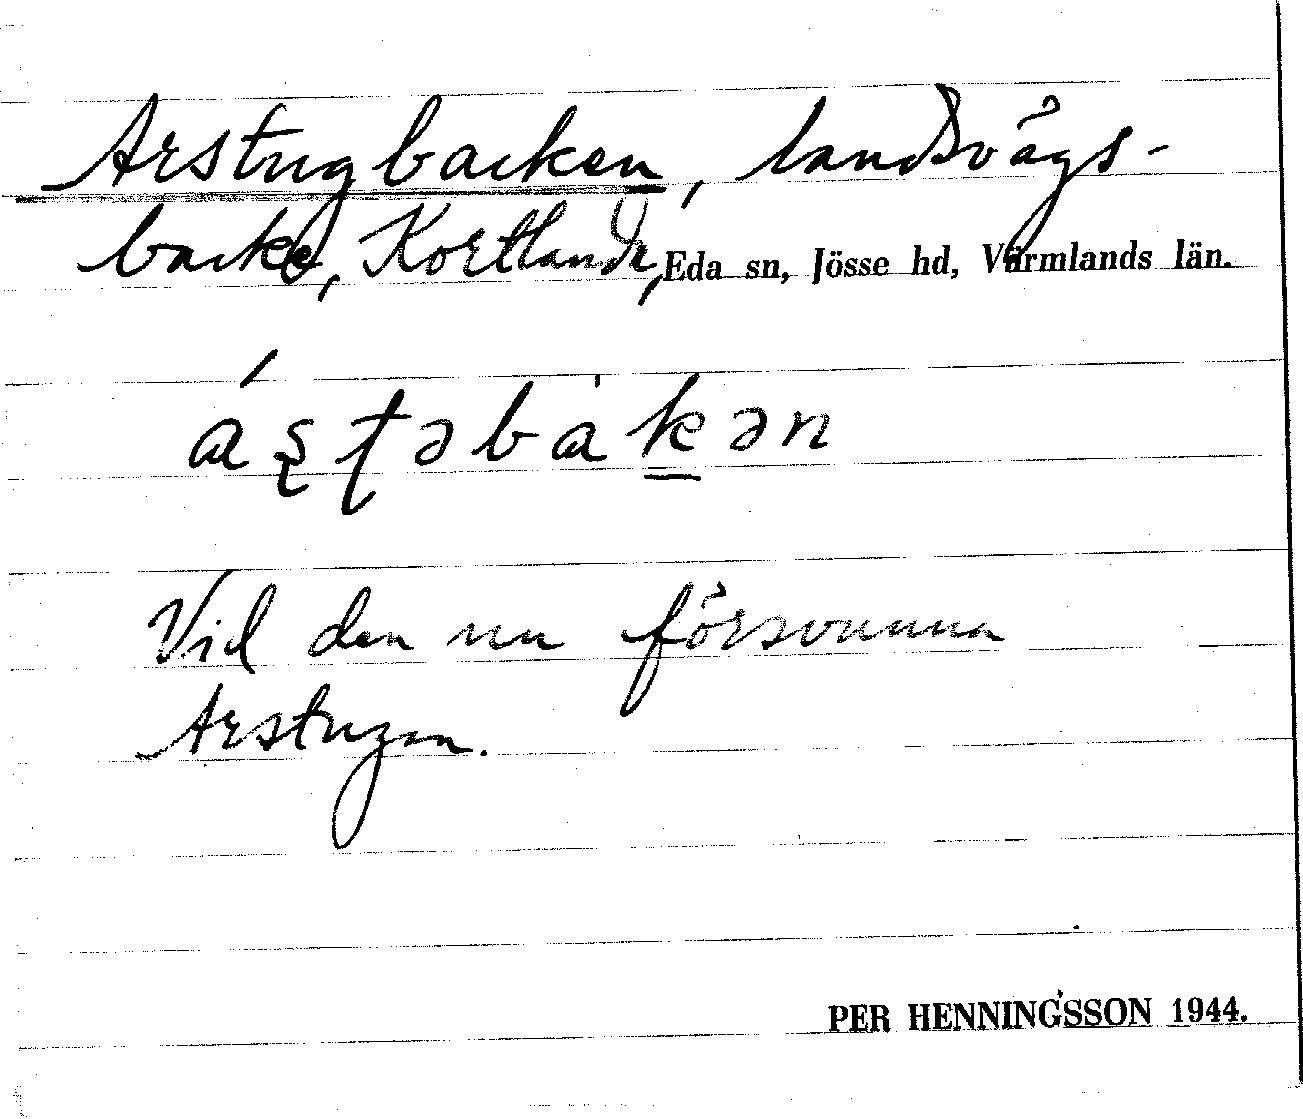 Arstugbacken, landsvägs-
backe, Kortlanda, Eda sn, Jösse hd, Värmlands län.
áʂʈəbàk̲ən
Vid den nu försvunna
Arstugan.
PER HENNINGSSON 1944.